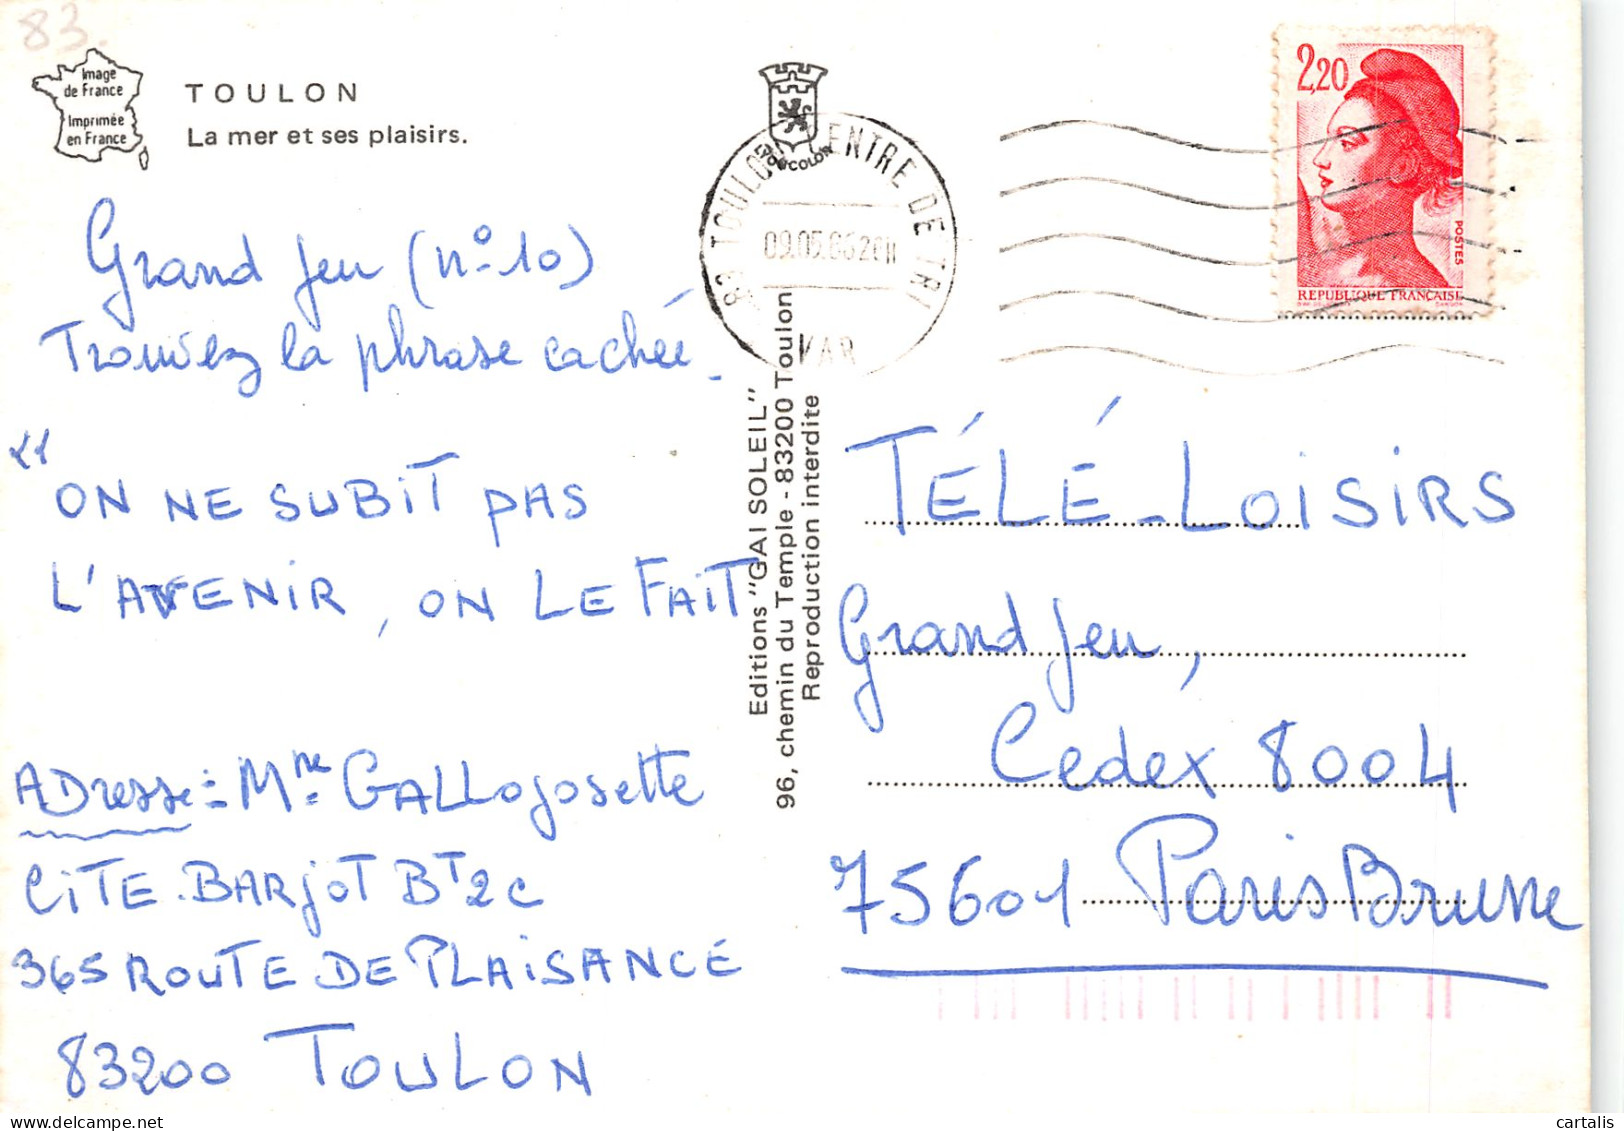 83.
Image
de France
Imprimée
en France
TOULON
La mer et ses plaisirs.
Grand Jeu (n° 10)
Trouvez la phrase cachée.
"
ON NE SUBIT PAS
L'AVENIR, ON LE FAIT
ADresse: Mme GALLO Josette
CITE. BARJOT BT 2C
365 ROUTE DE PLAISANCE
83200 TOULON
Editions "GAI SOLEIL"
96, chemin du Temple - 83200 Toulon
Reproduction interdite
83 TOULON CENTRE DE TRI
VAR
2,20
POSTES
REPUBLIQUE FRANÇAISE
TÉLÉ-LOISIRS
Grand Jeu,
Cedex 8004
75601 Paris Brune
cartalis
delcampe.net